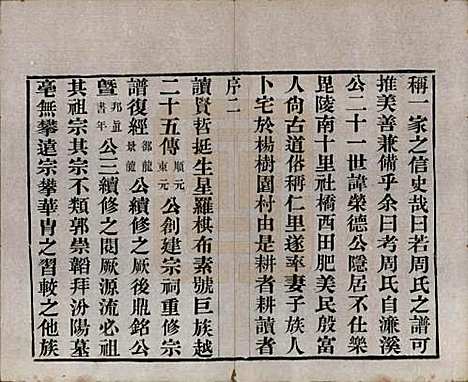 稱一家之信史哉曰若周氏之譜可
推美善兼備乎余曰考周氏自濂溪
公二十一世諱榮德公隱居不仕樂
毘陵南十里社橋西田肥美民殷富
人尚古道俗稱仁里遂率妻子族人
卜宅於楊樹園村由是耕者耕讀者
序二
讀賢哲挺生星羅棋布素號巨族越
二十五傳順元東元公創建宗祠重修宗
譜復經御龍景龍公續修之厥後鼎銘公
暨邦道書年公三續修之閱厥源流必祖
其祖宗其宗不類郭崇韜拜汾陽墓
毫無攀遠宗攀華胄之習較之他族